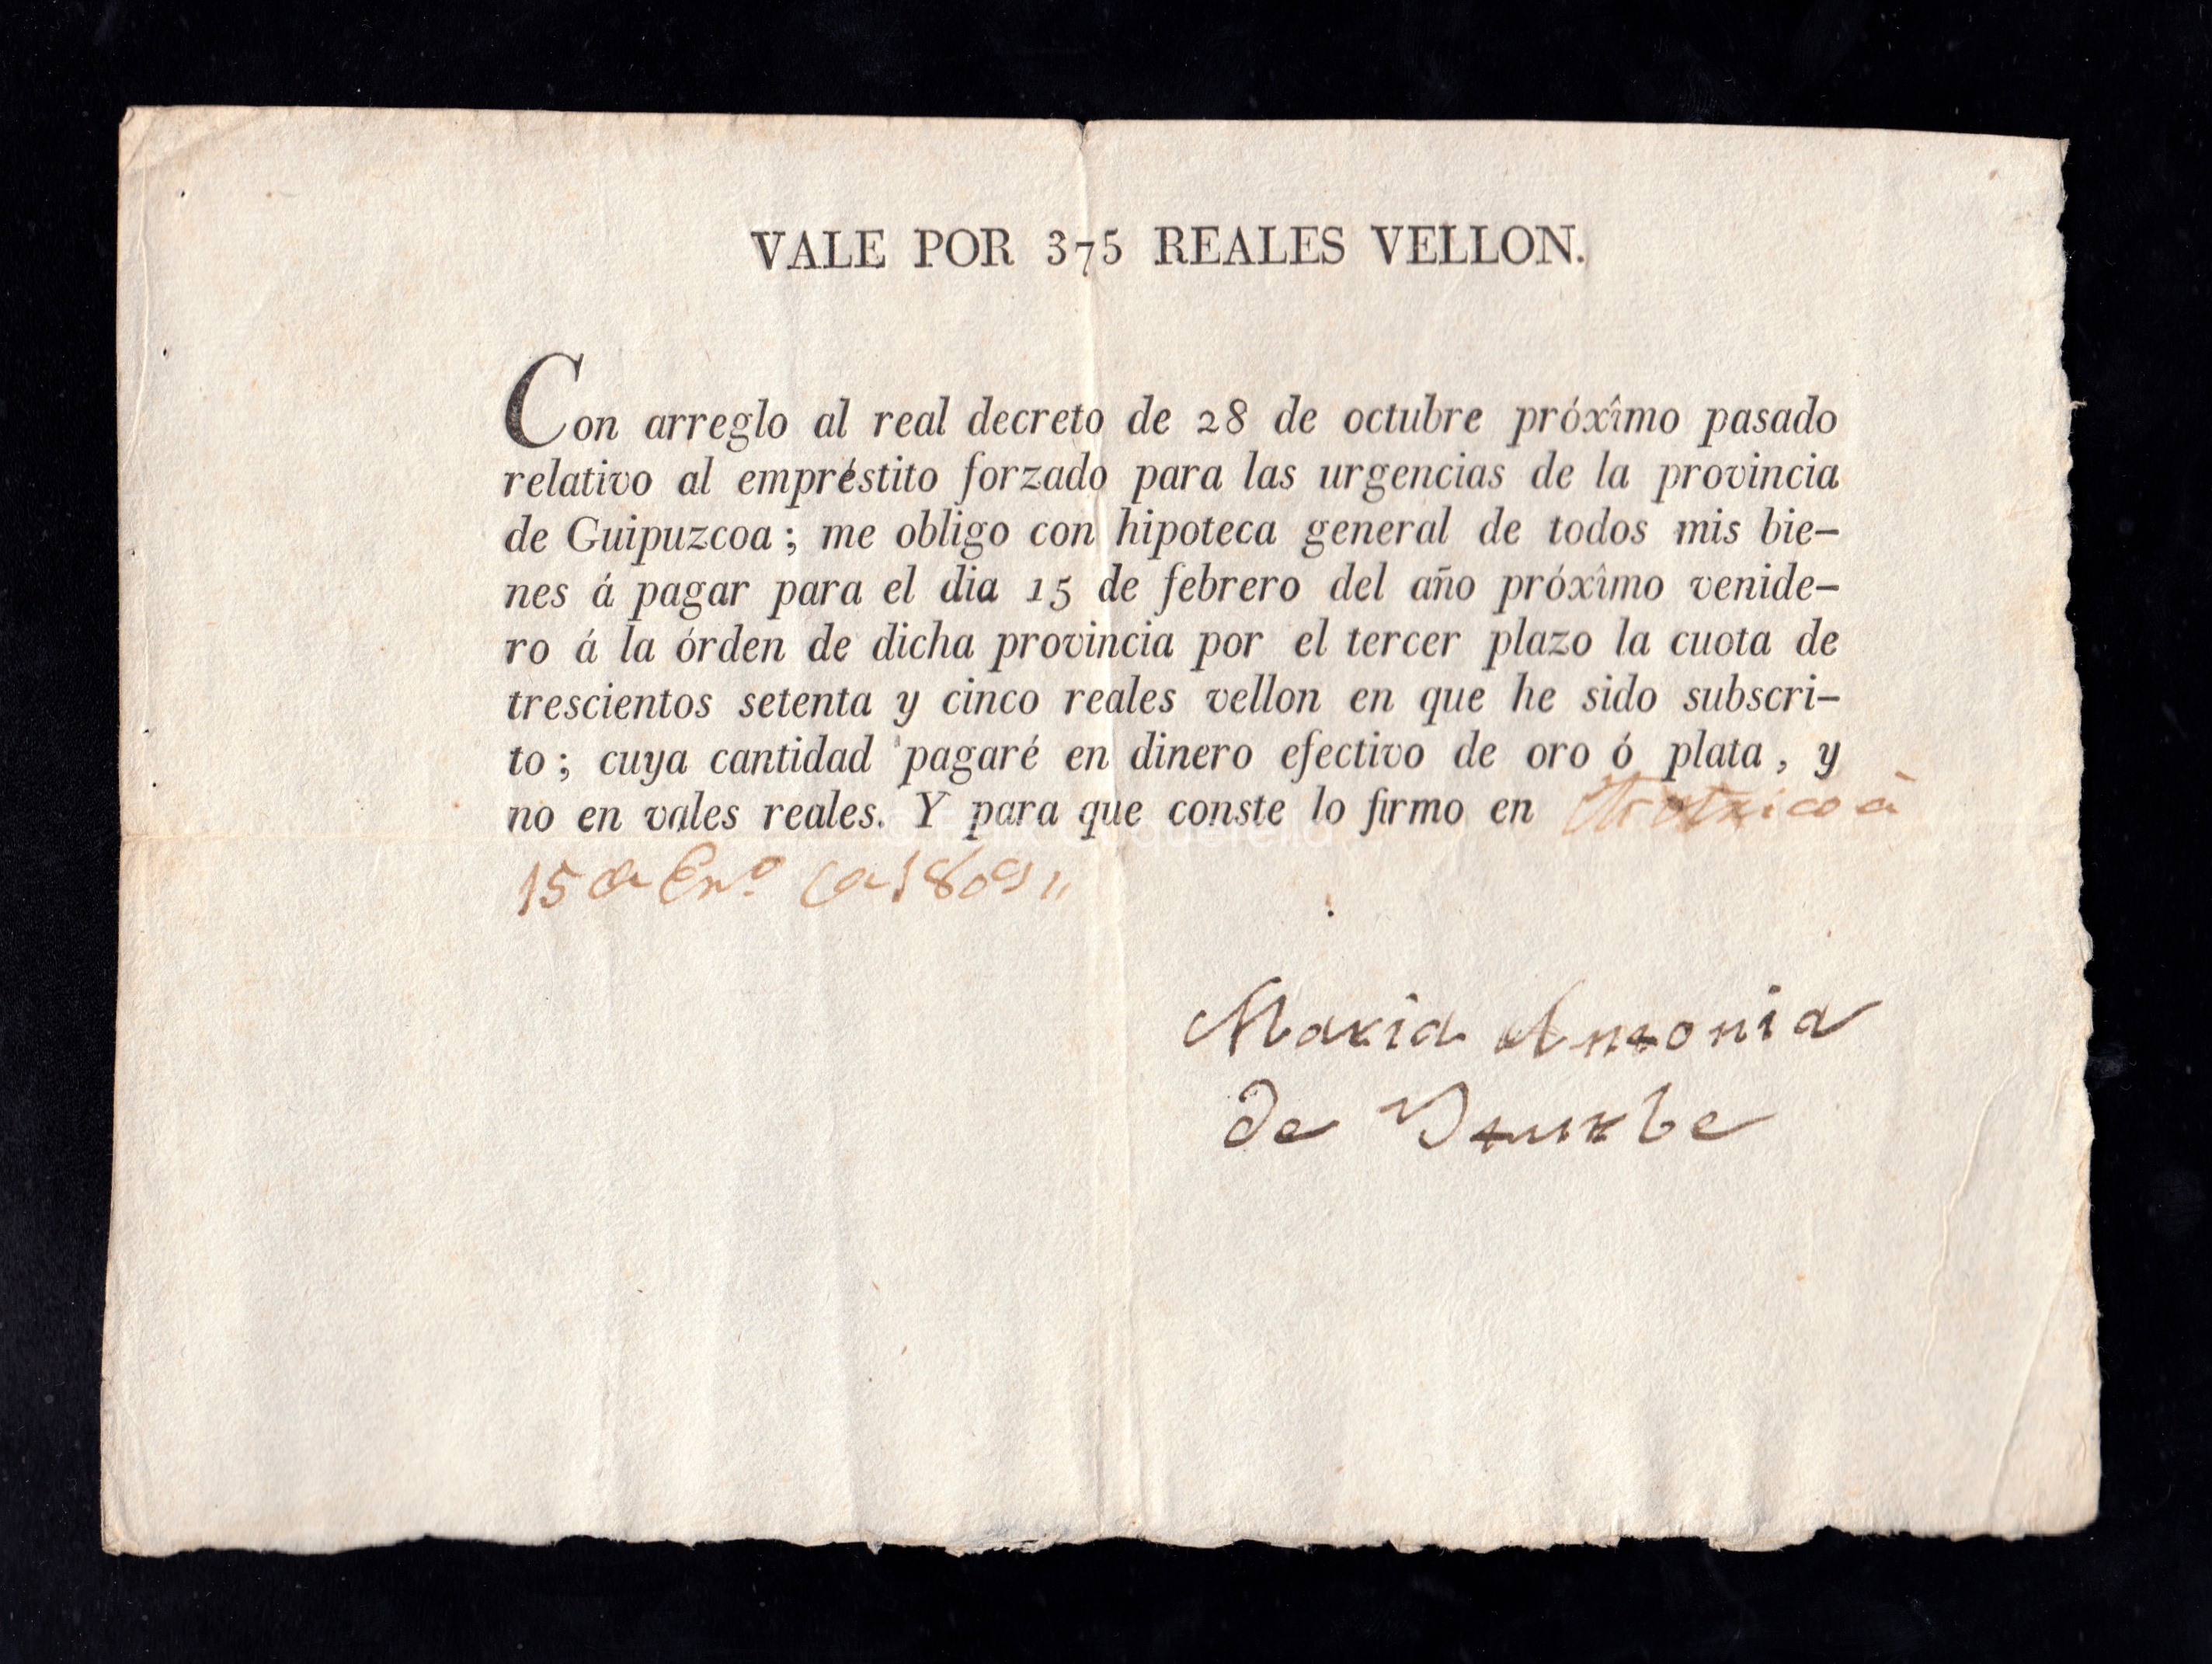 VALE POR 375 REALES VELLON.
Con arreglo al real decreto de 28 de octubre próxîmo pasado
relativo al empréstito forzado para las urgencias de la provincia
de Guipuzcoa; me obligo con hipoteca general de todos mis bie-
nes á pagar para el dia 15 de febrero del año próxîmo venide-
ro á la órden de dicha provincia por el tercer plazo la cuota de
trescientos setenta y cinco reales vellon en que he sido subscri-
to; cuya cantidad pagaré en dinero efectivo de oro ó plata, y
no en vales reales. Y para que conste lo firmo en à
15 de En.º de 1809
Maria Antonia
de